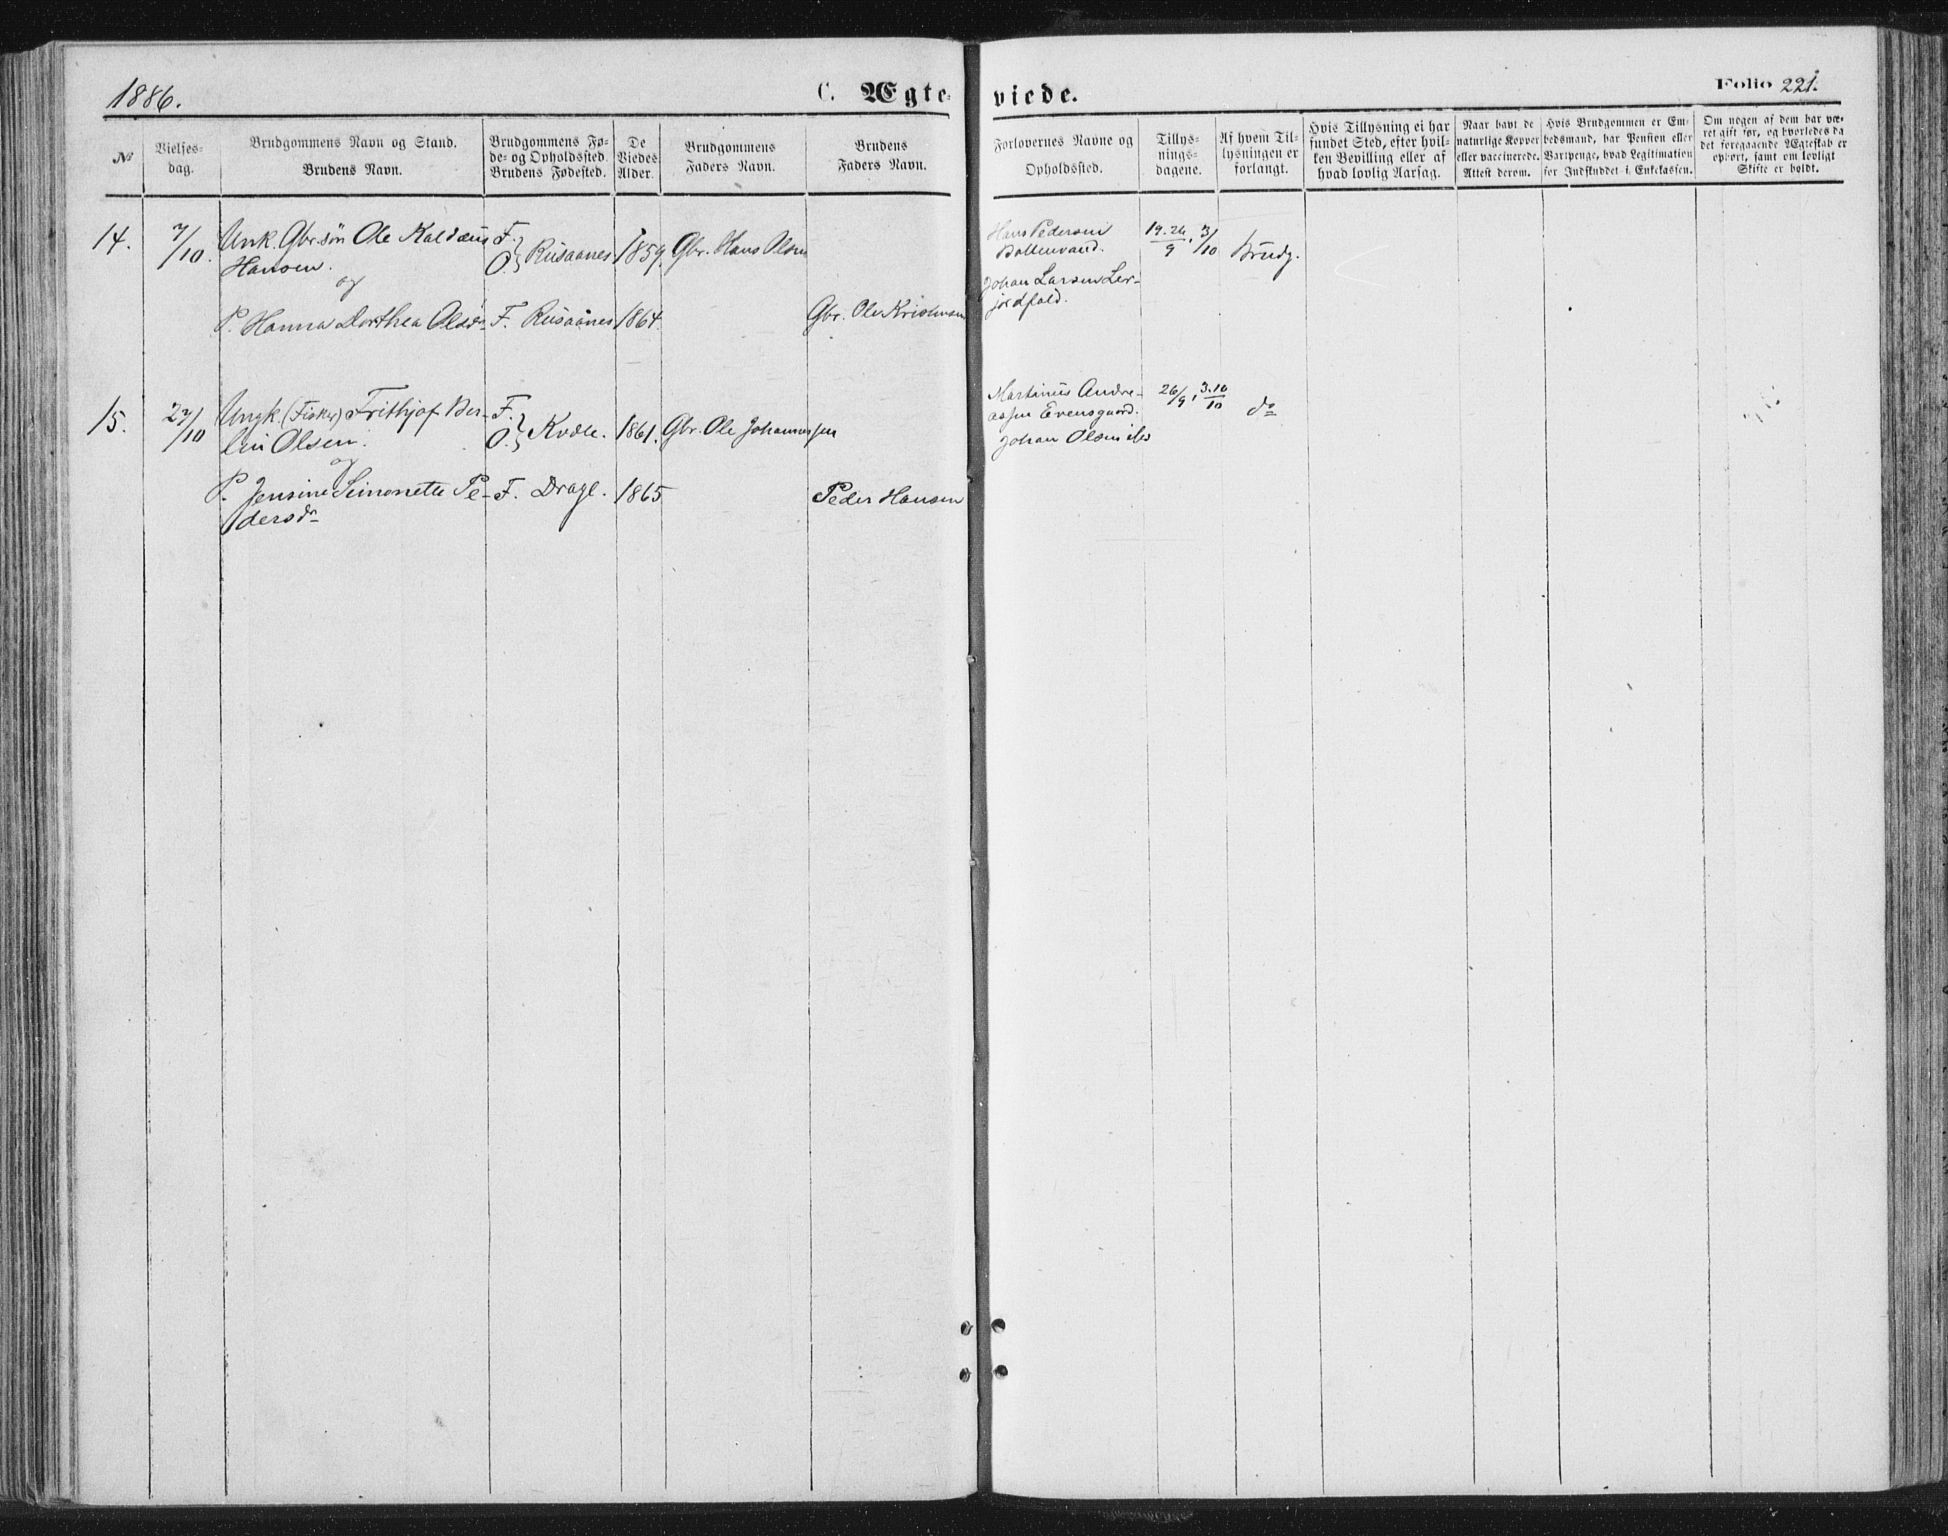 1886.
C. Ægte-
viede.
Folio 221.
No
Vielses-
dag.
Brudgommens Navn og Stand.
Brudens Navn.
Brudgommens Fø-
de- og Opholdssted.
Brudens Fødested.
De
Viedes
Alder.
Brudgommens
Faders Navn.
Brudens
Faders Navn.
Forlovernes Navne og
Opholdssted.
Tillys-
nings-
dagene.
Af hvem Til-
lysningen er
forlangt.
Hvis Tillysning ei har
fundet Sted, efter hvil-
ken Bevilling eller af
hvad lovlig Aarsag.
Naar havt de
naturlige Kopper
eller vaccinerede.
Attest derom.
Hvis Brudgommen er Em-
bedsmand, har Pension eller
Vartpenge, hvad Legitimation
for Indskuddet i Enkekassen.
Om nogen af dem har væ-
ret gift før, og hvorledes da
det foregaaende Ægteskab er
ophørt, samt om lovligt
Skifte er holdt.
14.
7/10.
Unk. Gbr.søn Ole Kaldæus
Hansen.
og
F.
O.
Rusaanes
1859.
Gbr. Hans Olsen
P. Hanna Dorthea Olsdr
F. Rusaanes
1864.
Gbr. Ole Kristensen
Hans Pedersen
Johan Larsen Ler-
jordfald.
19. 26/9, 3/10
Brudg.
15.
27/10
Ungk. (Fisker) Frithjof Ber-
lin Olsen.
og
F.
O.
Kvæl.
1861.
Gbr. Ole Johannessen
P. Jensine Simonette Pe-
dersdr
F. Drage.
1865
Peder Hansen
Martinus Andre-
assen Evensgaard.
Johan Olsen
26/9, 3.10/10
do